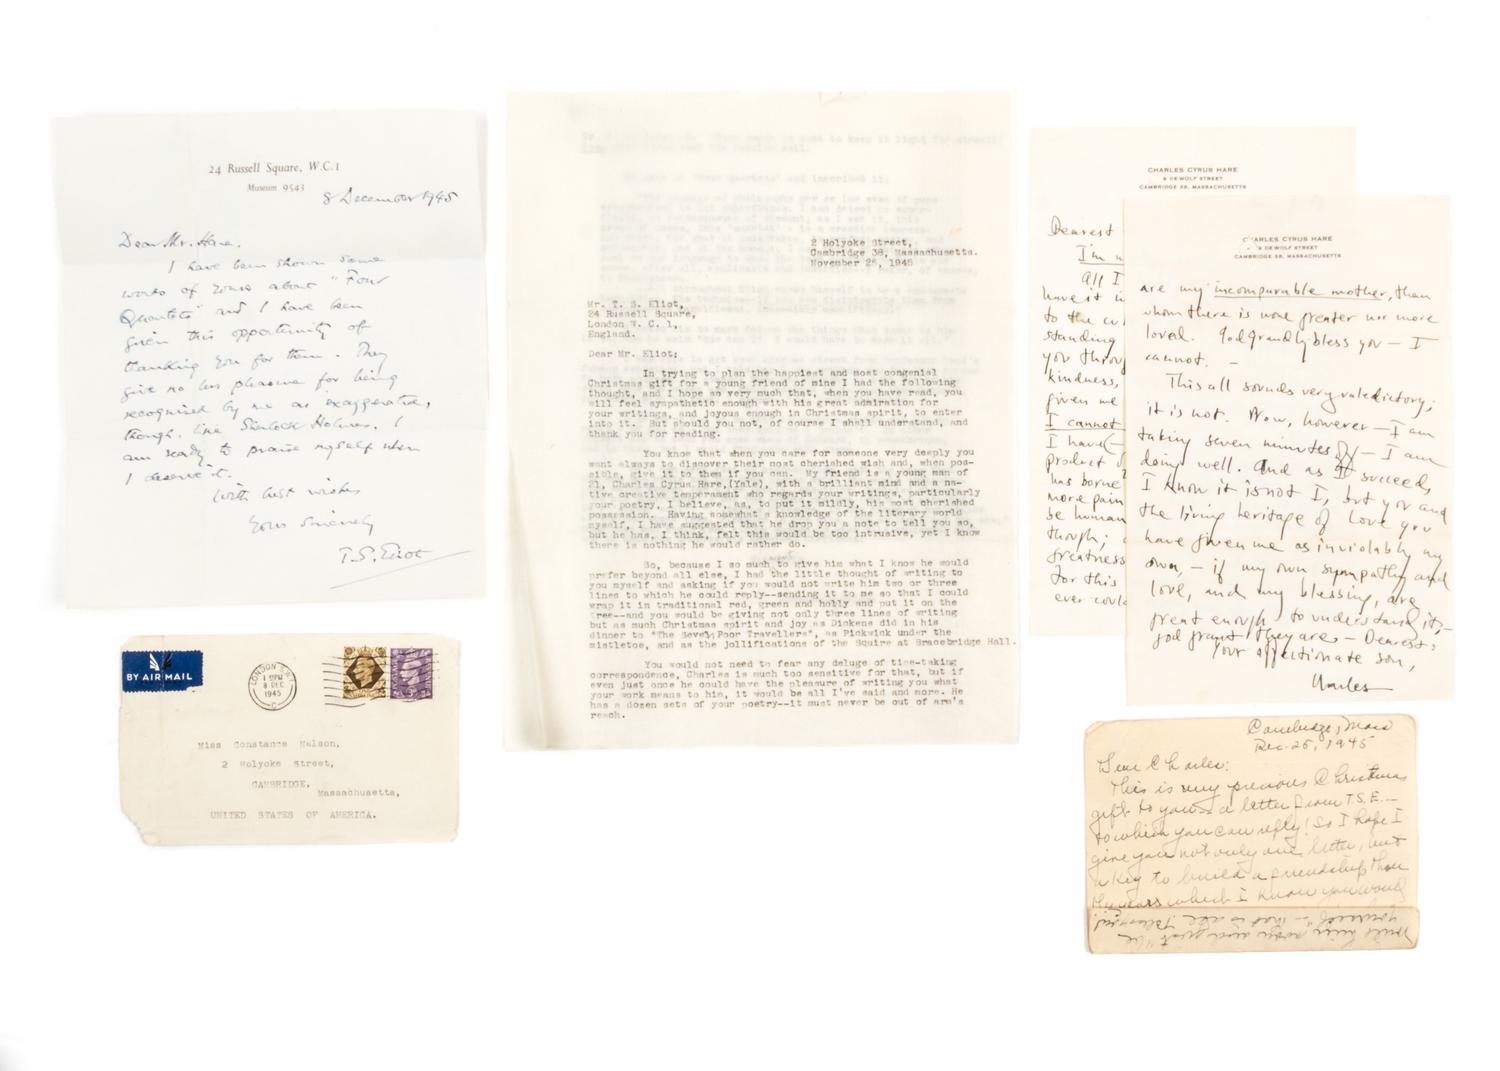 24 Russell Square, W.C.1
Museum 9543
8 December 1945
Dear Mr. Hare,
I have been shown some
words of yours about "Four
Quartets" and I have been
given this opportunity of
thanking you for them. They
give no less pleasure for being
recognised by me as exaggerated,
though, like Sherlock Holmes, I
am ready to praise myself when
I deserve it.
With best wishes
Yours sincerely
T. S. Eliot
BY AIR MAIL
LONDON S.W.1
8 DEC
1945
Miss Constance Nelson,
2 Holyoke Street,
CAMBRIDGE,
Massachusetts,
UNITED STATES OF AMERICA.
2 Holyoke Street,
Cambridge 38, Massachusetts.
November 26, 1945
Mr. T. S. Eliot,
24 Russell Square,
London W. C. 1,
England.
Dear Mr. Eliot:
In trying to plan the happiest and most congenial
Christmas gift for a young friend of mine I had the following
thought, and I hope so very much that, when you have read, you
will feel sympathetic enough with his great admiration for
your writings, and joyous enough in Christmas spirit, to enter
into it. But should you not, of course I shall understand, and
thank you for reading.
You know that when you care for someone very deeply you
want always to discover their most cherished wish and, when pos-
sible, give it to them if you can. My friend is a young man of
21, Charles Cyrus Hare,(Yale), with a brilliant mind and a na-
tive creative temperament who regards your writings, particularly
your poetry, I believe, as, to put it mildly, his most cherished
possession. Having somewhat a knowledge of the literary world
myself, I have suggested that he drop you a note to tell you so,
but he has, I think, felt this would be too intrusive, yet I know
there is nothing he would rather do.
So, because I so much want to give him what I know he would
prefer beyond all else, I had the little thought of writing to
you myself and asking if you would not write him two or three
lines to which he could reply--sending it to me so that I could
wrap it in traditional red, green and holly and put it on the
tree--and you would be giving not only three lines of writing
but as much Christmas spirit and joy as Dickens did in his
dinner to "The Seven Poor Travellers", as Pickwick under the
mistletoe, and as the jollifications of the Squire at Bracebridge Hall.
You would not need to fear any deluge of time-taking
correspondence, Charles is much too sensitive for that, but if
even just once he could have the pleasure of writing you what
your work means to him, it would be all I've said and more. He
has a dozen sets of your poetry--it must never be out of arm's
reach.
CHARLES CYRUS HARE
8 DEWOLF STREET
CAMBRIDGE 38, MASSACHUSETTS
Dearest
I'm
All I
have it
to the
standing
you throu
kindness,
given me
I cannot
I have
product
has borne
more pain
be human
though;
greatness
For this
ever could
CHARLES CYRUS HARE
8 DEWOLF STREET
CAMBRIDGE 38, MASSACHUSETTS
are my incomparable mother, than
whom there is none greater nor more
loved. God grandly bless you — I
cannot. —
This all sounds very valedictory;
it is not. Now, however — I am
taking seven minutes off — I am
doing well. And as it succeeds
I know it is not I, but you and
the living heritage of love you
have given me as inviolably my
own, — if my own sympathy and
love, and my blessing, are
great enough to understand it, —
God grant they are — Dearest,
Your affectionate son,
Charles
Cambridge, Mass
Dec. 25, 1945
Dear Charles:
This is my precious Christmas
gift to you — a letter from T.S.E. —
to which you can reply! So I hope I
give you not only one letter, but
a key to build a friendship thru
the years which I know you would
yourself" — that is all